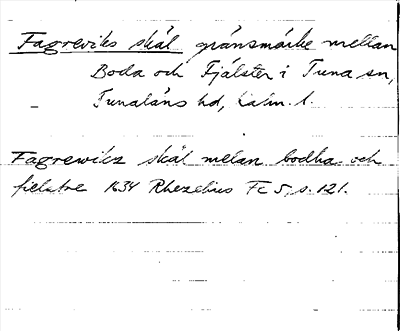 Fagreviks skäl gränsmärke mellan
Boda och Fjälster i Tuna sn,
Tunaläns hd, Kalm. l.
Fagrewikz skäl melan bodha och
fielstre 1634 Rhezelius Fc 5, s. 121.